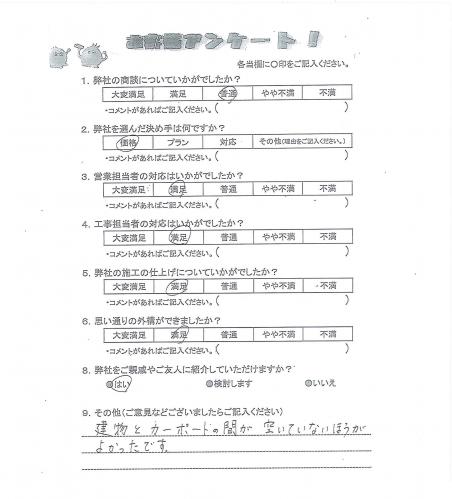 お客様アンケート！
各当欄に〇印をご記入ください。
1. 弊社の商談についていかがでしたか？
大変満足 満足 普通 やや不満 不満
・コメントがあればご記入ください。( )
2. 弊社を選んだ決め手は何ですか？
価格 プラン 対応 その他(理由をご記入ください。)
・コメントがあればご記入ください。( )
3. 営業担当者の対応はいかがでしたか？
大変満足 満足 普通 やや不満 不満
・コメントがあればご記入ください。( )
4. 工事担当者の対応はいかがでしたか？
大変満足 満足 普通 やや不満 不満
・コメントがあればご記入ください。( )
5. 弊社の施工の仕上げについていかがでしたか？
大変満足 満足 普通 やや不満 不満
・コメントがあればご記入ください。( )
6. 思い通りの外構ができましたか？
大変満足 満足 普通 やや不満 不満
・コメントがあればご記入ください。( )
8. 弊社をご親戚やご友人に紹介していただけますか？
◎はい ◎検討します ◎いいえ
9. その他(ご意見などございましたらご記入ください)
建物とカーポートの間が空いていないほうが
よかったです。